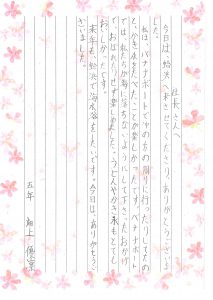 社長さんへ
今日は、鯨浜へ来させてくださり、ありがとうございま
した。
私は、バナナボートで沖の方の周りに行ったりしたの
と、かき氷をたべたことが楽しかったです。バナナボート
では、私たちが海に落ちないようにして下さったおかげ
で、おぼれたりせず楽しめました。うどんやかき氷もとても
おいしかったです。
来年も、鯨浜で海水浴をしたいです。今日は、ありがとうご
ざいました。
五年